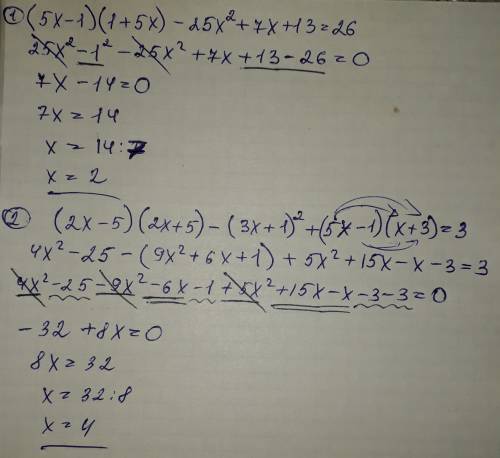 ① (5x-1)(1+5x)-25x²+7x+13=26
25x²-1²-25x²+7x+13-26=0
7x-14=0
7x=14
x=14:7
x=2
② (2x-5)(2x+5)-(3x+1)²+(5x-1)(x+3)=3
4x²-25-(9x²+6x+1)+5x²+15x-x-3=3
4x²-25-9x²-6x-1+5x²+15x-x-3-3=0
-32+8x=0
8x=32
x=32:8
x=4